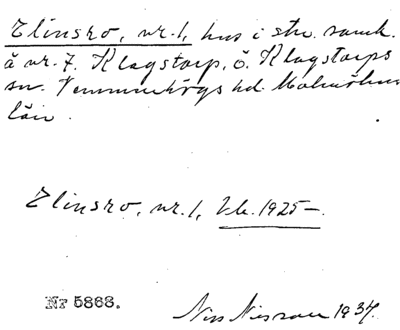 Elinsro, nr. 1, hus i stn. samh.
å nr. 7. Klagstorp, ö. Klagstorps
sn. Vemmenhögs hd. Malmöhus
län.
Elinsro, nr. 1, Vb. 1925 –.
Nr 5868.
Nils Nilsson 1934.